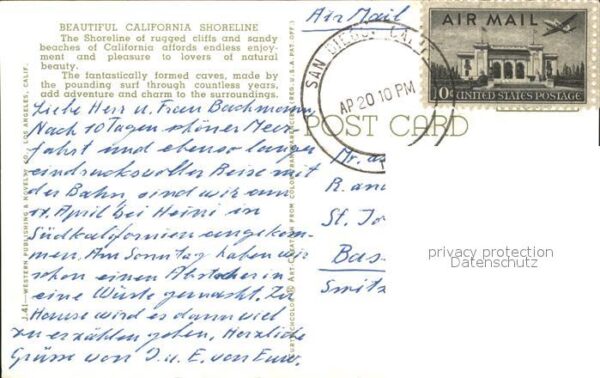 BEAUTIFUL CALIFORNIA SHORELINE
The Shoreline of rugged cliffs and sandy
beaches of California affords endless enjoy-
ment and pleasure to lovers of natural
beauty.
The fantastically formed caves, made by
the pounding surf through countless years,
add adventure and charm to the surroundings.
Liebe Herr u. Frau Bachmann,
Nach 10 Tagen schöner Meer-
fahrt und ebenso langer
eindrucksvoller Reise mit
der Bahn, sind wir am
11. April bei Heini in
Südkalifornien angekom-
men. Am Sonntag haben wir
schon einen Abstecher in
eine Wüste gemacht. Zu
Hause wird es dann viel
zu erzählen geben. Herzliche
Grüsse von J. u. E. von
J.41—WESTERN PUBLISHING & NOVELTY CO., LOS ANGELES, CALIF.
Air Mail
SAN DIEGO, CALIF.
AP 20 10 PM
AIR MAIL
10¢ UNITED STATES POSTAGE
POST CARD
Mr. a
R. an
St. Jo
Bas
Switz
privacy protection
Datenschutz